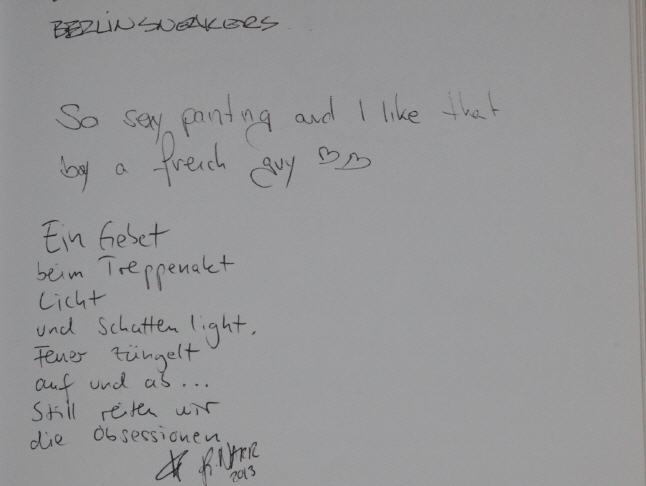 BERLINSNEAKERS
So sexy panting and I like that
by a freich guy
Ein Gebet
beim Treppenakt
Licht
und Schatten light.
Feuer züngelt
auf und ab...
Still reiten wir
die Obsessionen
2013